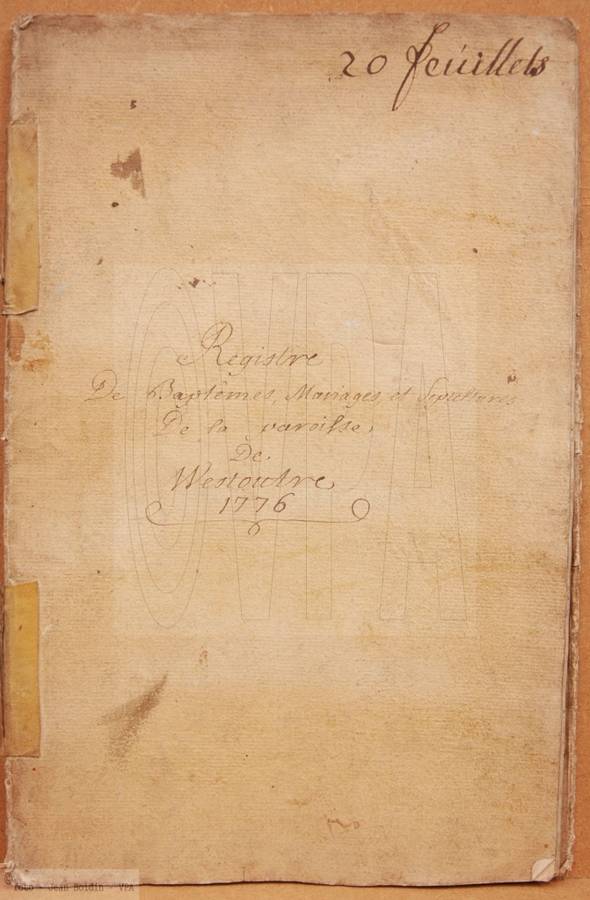 20 feuillets
Registre
De Baptêmes, Mariages, et Sepultures
De la paroisse
De
Westoutre
1776
CVPA
Foto - Jean Boidin / VPA